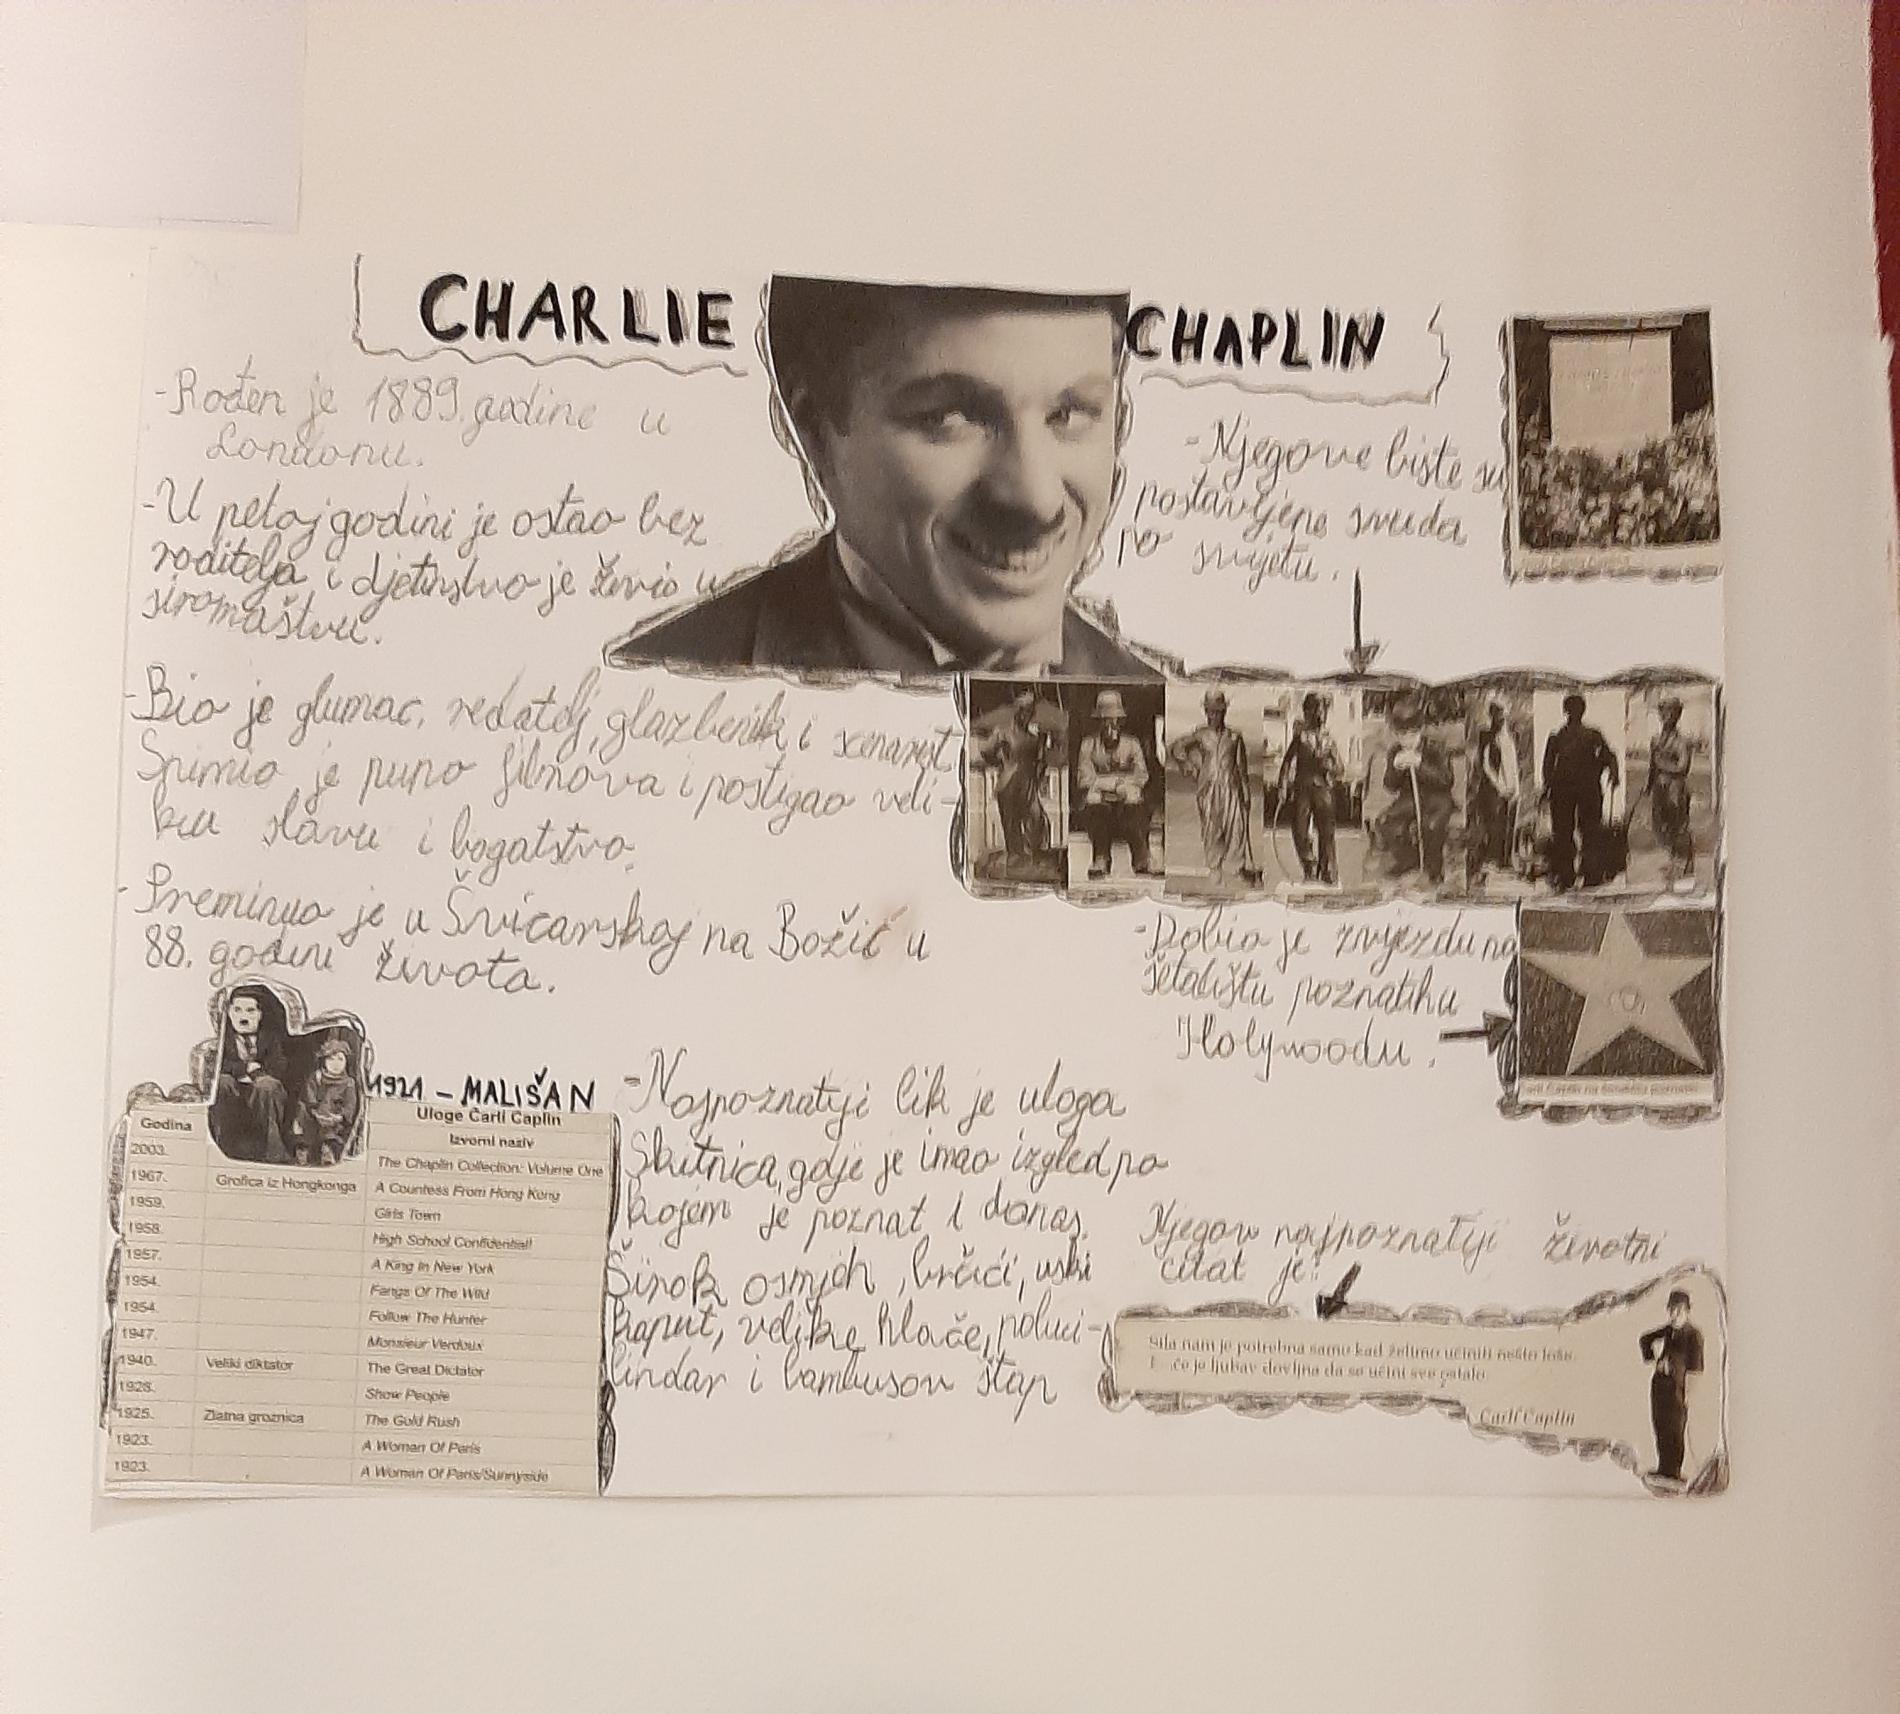 CHARLIE CHAPLIN
-Rođen je 1889. godine u
Londonu.
-U petoj godini je ostao bez
roditelja i djetinstvo je živio u
siromaštvu.
-Bio je glumac, redatelj, glazbenik i scenarist.
Snimio je puno filmova i postigao veli-
ku slavu i bogatstvo.
-Preminuo je u Švicarskoj na Božić u
88. godini života.
-Njegove biste su
postavljene svuda
po svijetu.
-Dobio je zvijezdu na
šetalištu poznatih u
Holywoodu.
1921 - MALIŠAN
Uloge Čarli Čaplin
Godina Izvorni naziv
2003. The Chaplin Collection: Volume One
1967. Grofica iz Hongkonga A Countess From Hong Kong
1959. Girls Town
1958. High School Confidential!
1957. A King In New York
1954. Fangs Of The Wild
1954. Follow The Hunter
1947. Monsieur Verdoux
1940. Veliki diktator The Great Dictator
1928. Show People
1925. Zlatna groznica The Gold Rush
1923. A Woman Of Paris
1923. A Woman Of Paris/Sunnyside
-Najpoznatiji lik je uloga
Skitnica, gdje je imao izgled po
kojem je poznat i danas.
Širok osmjeh, brčići, uski
kaput, velike hlače, poluci-
lindar i bambusov štap
Njegov najpoznatiji životni
citat je:
Sila nam je potrebna samo kad želimo učiniti nešto loše.
je ljubav dovljna da se učini sve ostalo
Čarli Čaplin